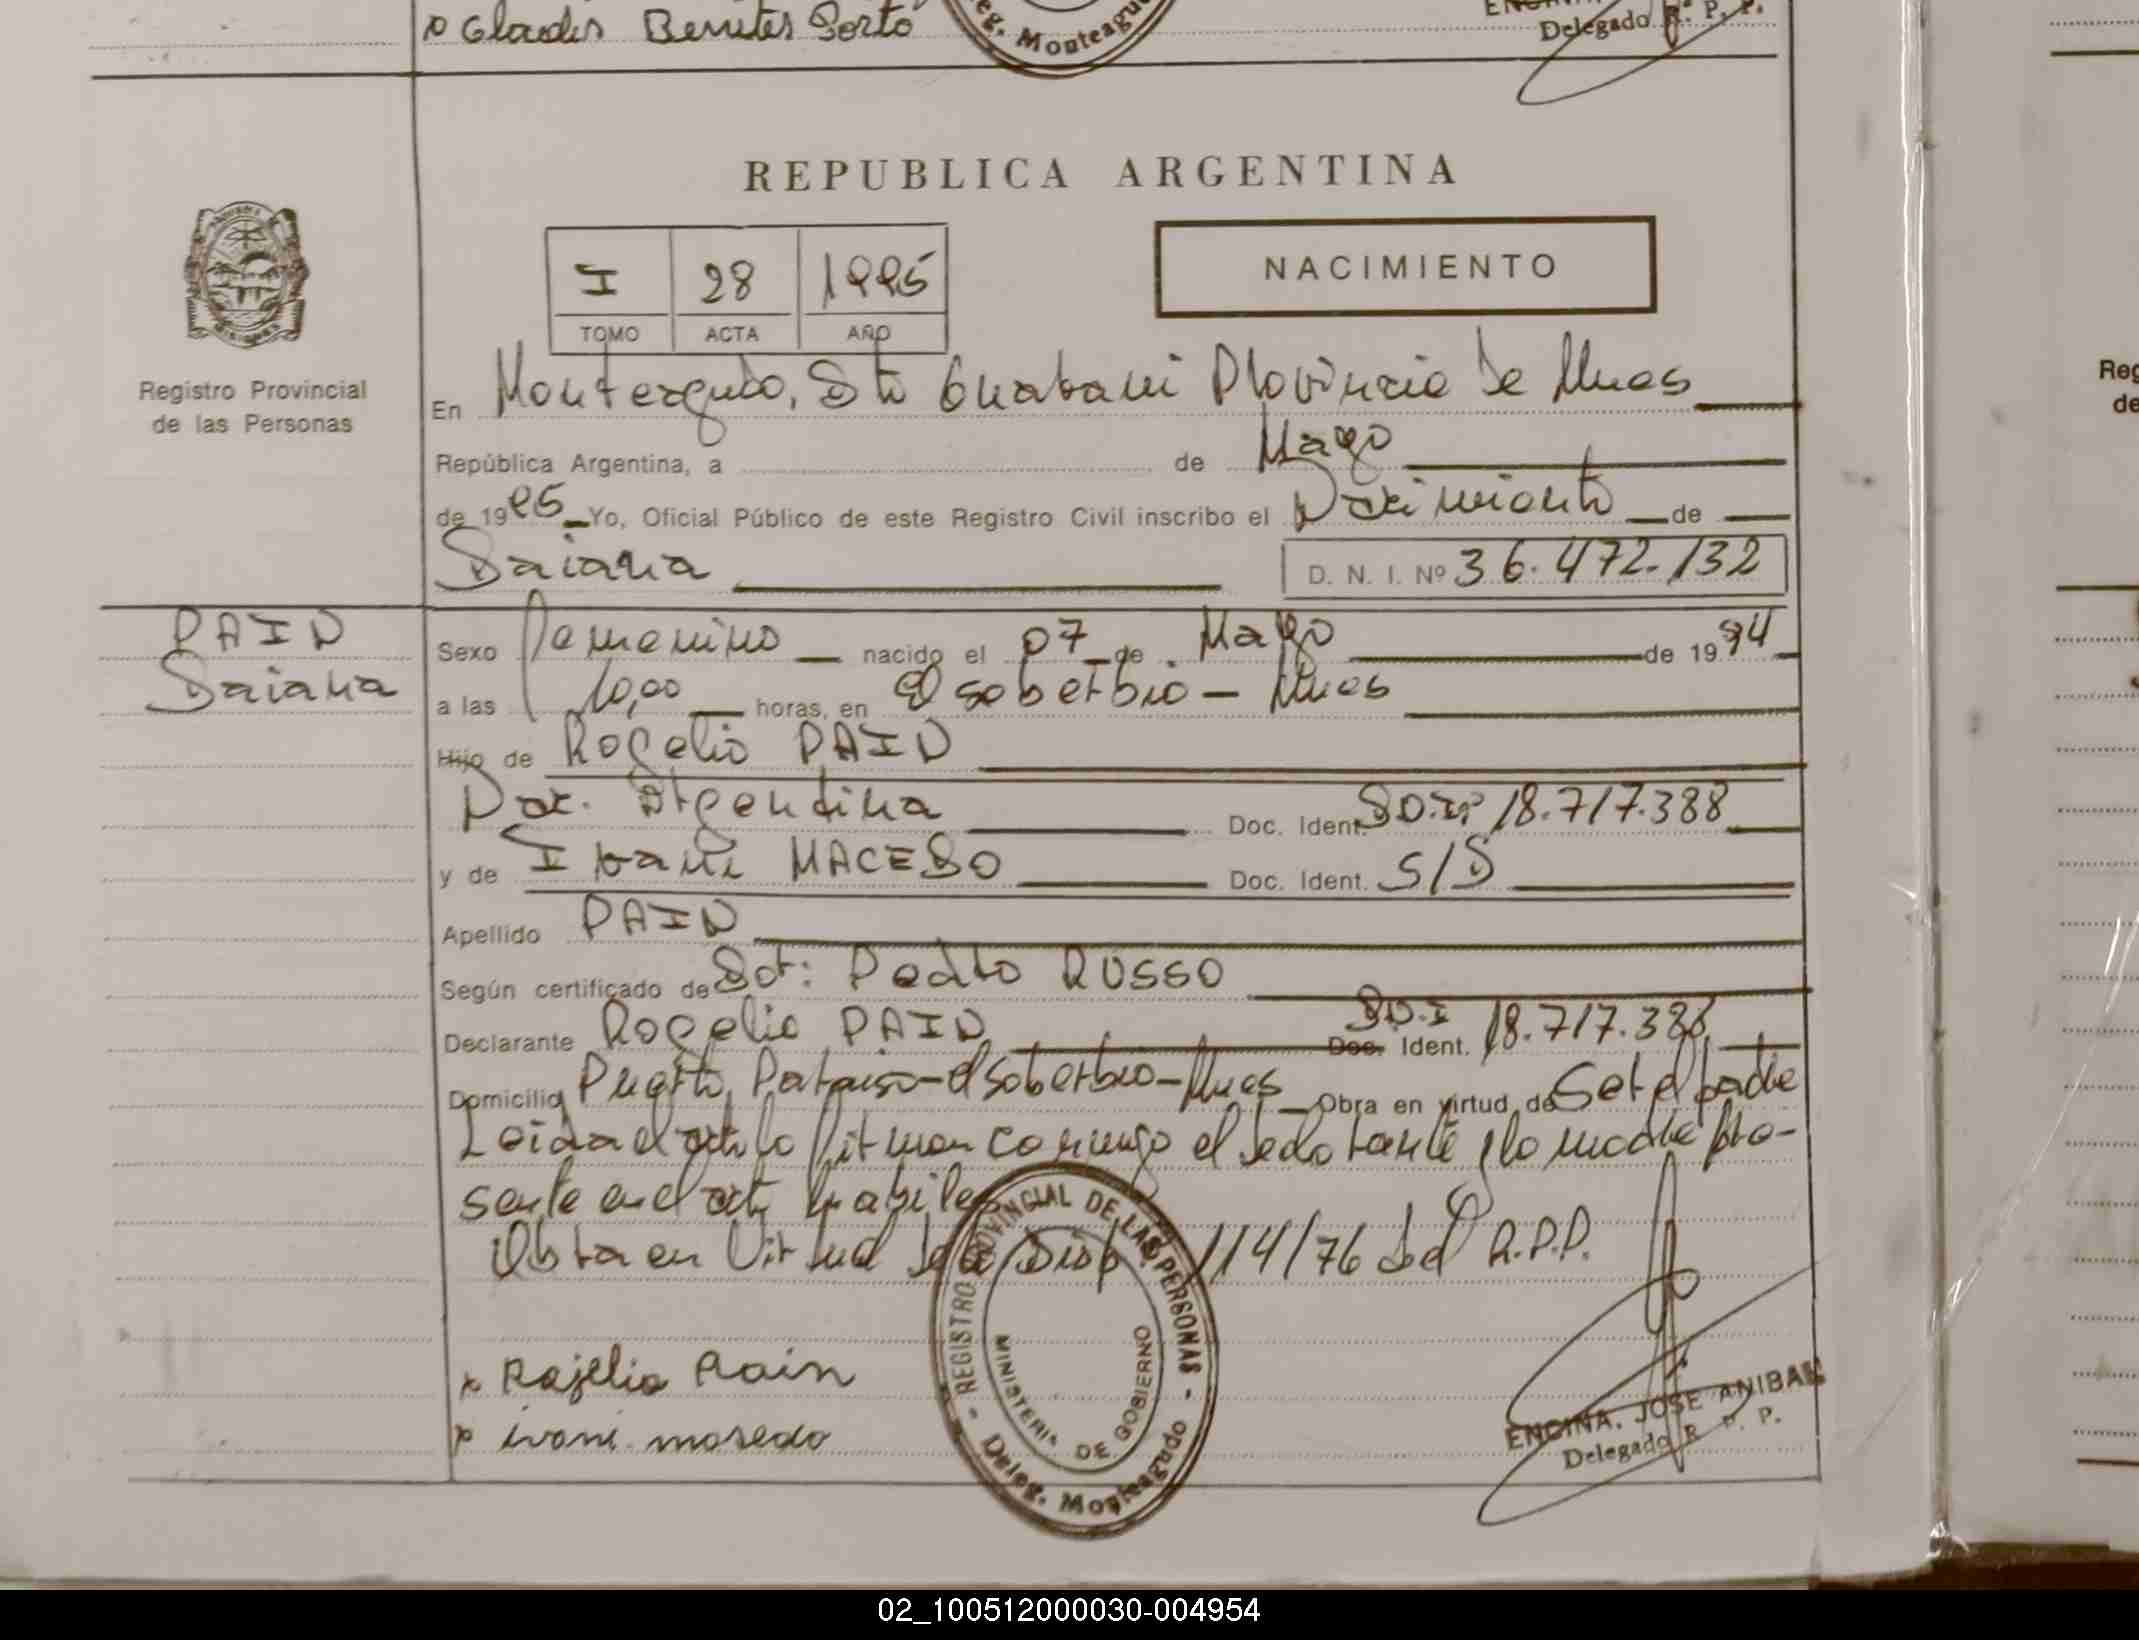 Gladis Benites Porto
Deleg. Monteagudo
Delegado R. P. P.
REPUBLICA ARGENTINA
I 28 1995
TOMO ACTA AÑO
NACIMIENTO
Registro Provincial
de las Personas
En Monteagudo, Dto Guarani Provincia de Mnes
República Argentina, a de Mayo
de 1995 Yo, Oficial Público de este Registro Civil inscribo el Nacimiento de
Daiana D. N. I. Nº 36.472.132
PAIN
Daiana
Sexo Femenino nacido el 07 de Mayo de 1994
a las 10,00 horas, en El soberbio - Mnes
Hijo de Rogelio PAIN
Nac. Argentina Doc. Ident. D.N.I. 18.717.388
y de Ivani MACEDO Doc. Ident. S/D
Apellido PAIN
Según certificado de Dor: Pedro RUSSO
Declarante Rogelio PAIN D.N.I Doc. Ident. 18.717.388
Domicilio Puerto Paraiso - el soberbio - Mnes Obra en virtud de Ser el padre
Leida el acta lo firman conmigo el declarante y la madre pre-
sente en el acto
Obra en Virtud de la Disp. 114/76 del R.P.P.
x Rojelio Pain
x ivani masedo
REGISTRO PROVINCIAL DE LAS PERSONAS - Deleg. Monteagudo -
MINISTERIO DE GOBIERNO
ENCINA. JOSE ANIBAL
Delegado R. P. P.
Reg
de
02_100512000030-004954